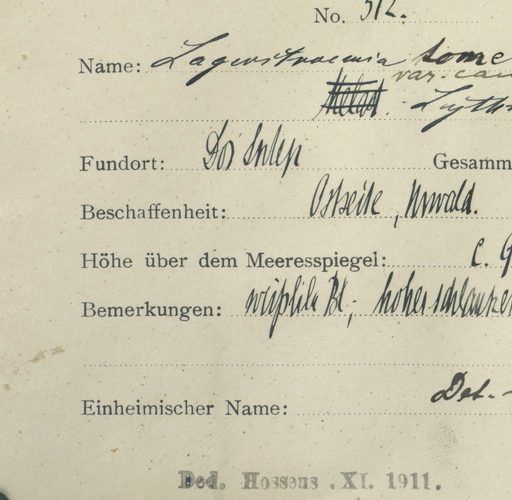 No. 312.
Name: Lagerstroemia tome
var. cau
Lyth
Fundort: Doi Sutep Gesamm
Beschaffenheit: Ostseite, Urwald.
Höhe über dem Meeresspiegel: c. 9
Bemerkungen: weißlila Bl.; hoher schlanker
Einheimischer Name: Det. -
Ded. Hosseus .XI. 1911.